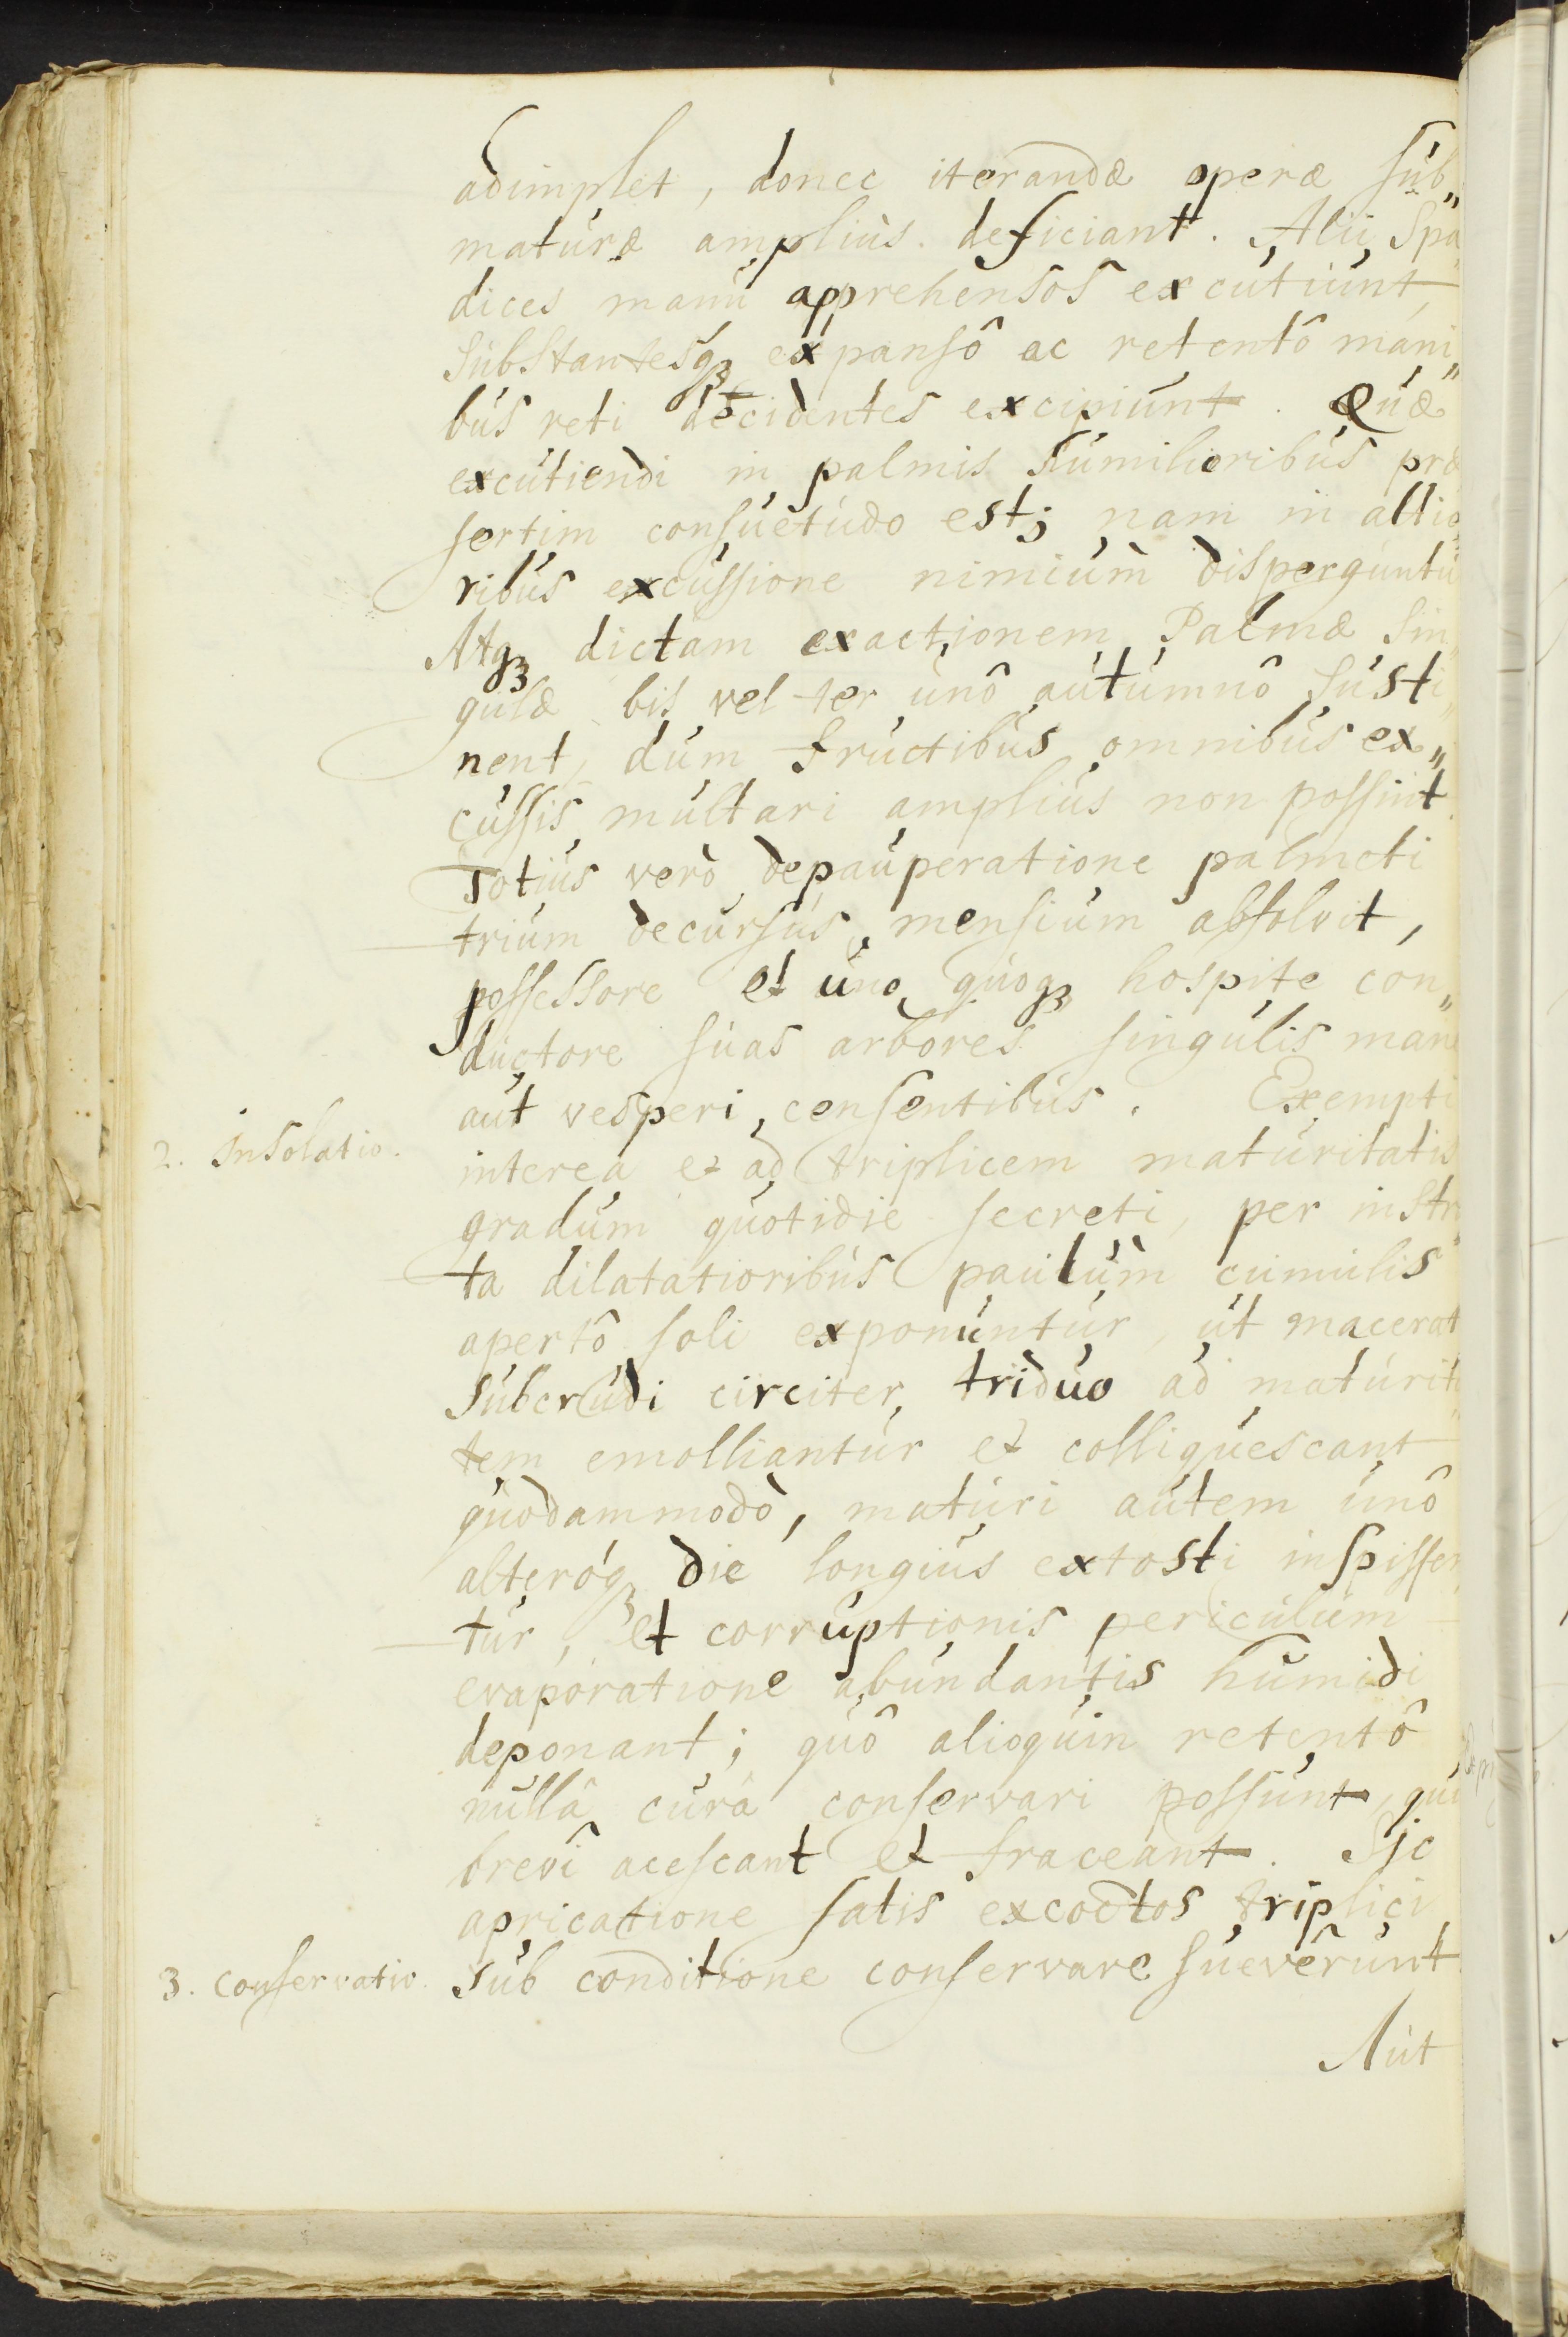 adimplet, donec iterandæ operæ sub„
maturæ ampliùs deficiant. Alii Spa„
dices manu apprehensos excutiunt,
substantesqȝ expansô ac retentô mani„
bus reti decidentes excipiunt. Quæ
excutiendi in palmis humilioribus præ
sertim consuetudo est; nam in altio„
ribus excussione nimiùm disperguntu
Atqȝ dictam exactionem Palmæ sin„
gulæ bis vel ter unô autumnô susti„
nent, dum fructibus omnibus ex„
cussis multari amplius non possint.
Totius verò depauperatione palmeti
trium decursus mensium absolvit,
possessore et uno quoqȝ hospite con„
ductore suas arbores singulis mane
aut vesperi censentibus. Exempti
2. Insolatio.
interea et ad triplicem maturitatis
gradum quotidie secreti, per instra
ta dilatatioribus paulùm cumulis
apertô soli exponuntur, ut macerat
subcrudi circiter triduo ad maturita
tem emolliantur et colliquescant
quodammodò, maturi autem unô
alteróqȝ die longius extosti inspissen
tur, et corruptionis periculum
evaporatione abundantis humidi
deponant; quô alioquin retentô
nullâ curâ conservari possunt, qui
brevî acescant et fraceant. Sic
apricatione satis excoctos triplici
3. Conservatio.
sub conditione conservare suevêrunt.
Aut